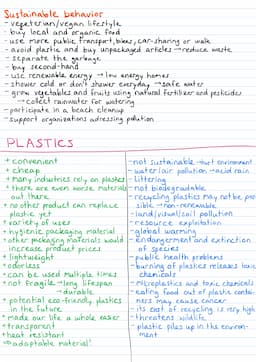 Sustainable behavior
- vegeterian/vegan lifestyle
- buy local and organic food
- use more public transport, bikes, car-sharing or walk
- avoid plastic and buy unpackaged articles → reduce waste
- separate the garbage
- buy second-hand
- use renewable energy → low energy homes
- shower cold or don't shower everyday → safe water
- grow vegetables and fruits using natural fertilizer and pesticides
→ collect rainwater for watering
- participate in a beach cleanup
- support organizations adressing pollution
PLASTICS
+ convenient
+ cheap
+ many industries rely on plastics
+ there are even worse materials out there
+ no other product can replace plastic yet
+ variety of uses
+ hygienic packaging material
+ other packaging materials would increase product prices
+ lightweight
+ odorless
+ can be used multiple times
+ not fragile → long lifespan
→ durable
+ potential eco-friendly plastics in the future
+ made our life a whole easier
+ transparent
+ heat resistant
⇒ adaptable material!
- not sustainable → hurt environment
- water/air pollution → acid rain
- littering
- not biodegradable
- recycling plastics may not be possible → non-renewable
- land/visual/soil pollution
- resource exploitation
- global warming
- endangerment and extinction of species
- public health problems
- burning of plastics releases toxic chemicals
- microplastics and toxic chemicals
- eating food out of plastic containers may cause cancer
- its cost of recycling is very high
- threatens wildlife
- plastic piles up in the environment